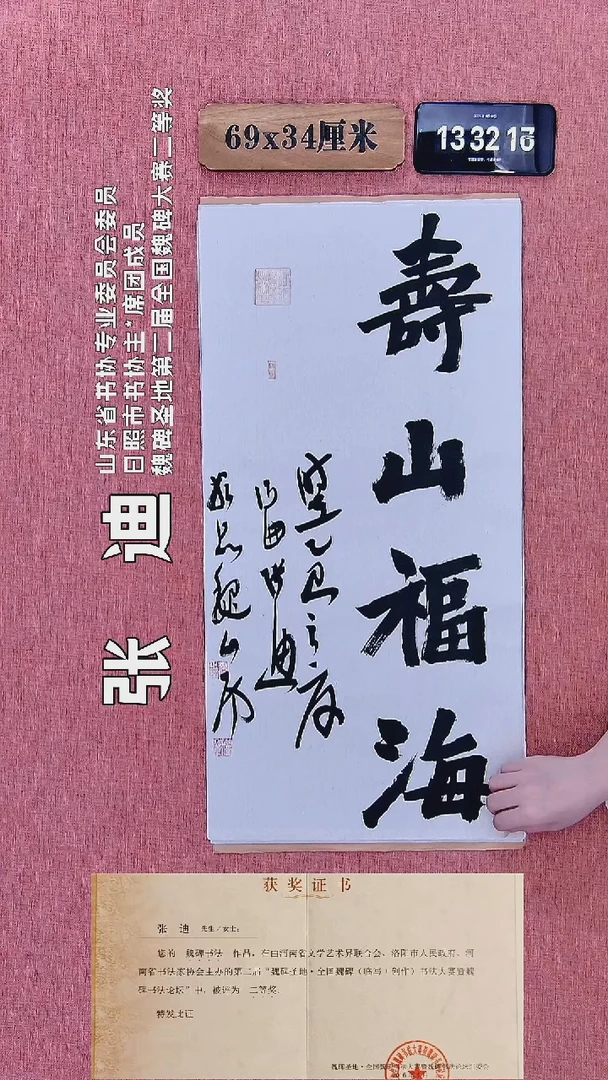 69x34厘米
13 32
壽山福海
乙巳之
山东省书协专业委员会委员
日照市书协主*席团成员
魏碑圣地第二届全国魏碑大赛二等奖
张 迪
获奖证书
张 迪 先生/女士：
您的 魏碑书法 作品，在由河南省文学艺术界联合会、洛阳市人民政府、河
南省书法家协会主办的第二届“魏碑圣地·全国魏碑（临写|创作）书法大赛暨魏
碑书法论坛”中，被评为 二等奖。
特发此证